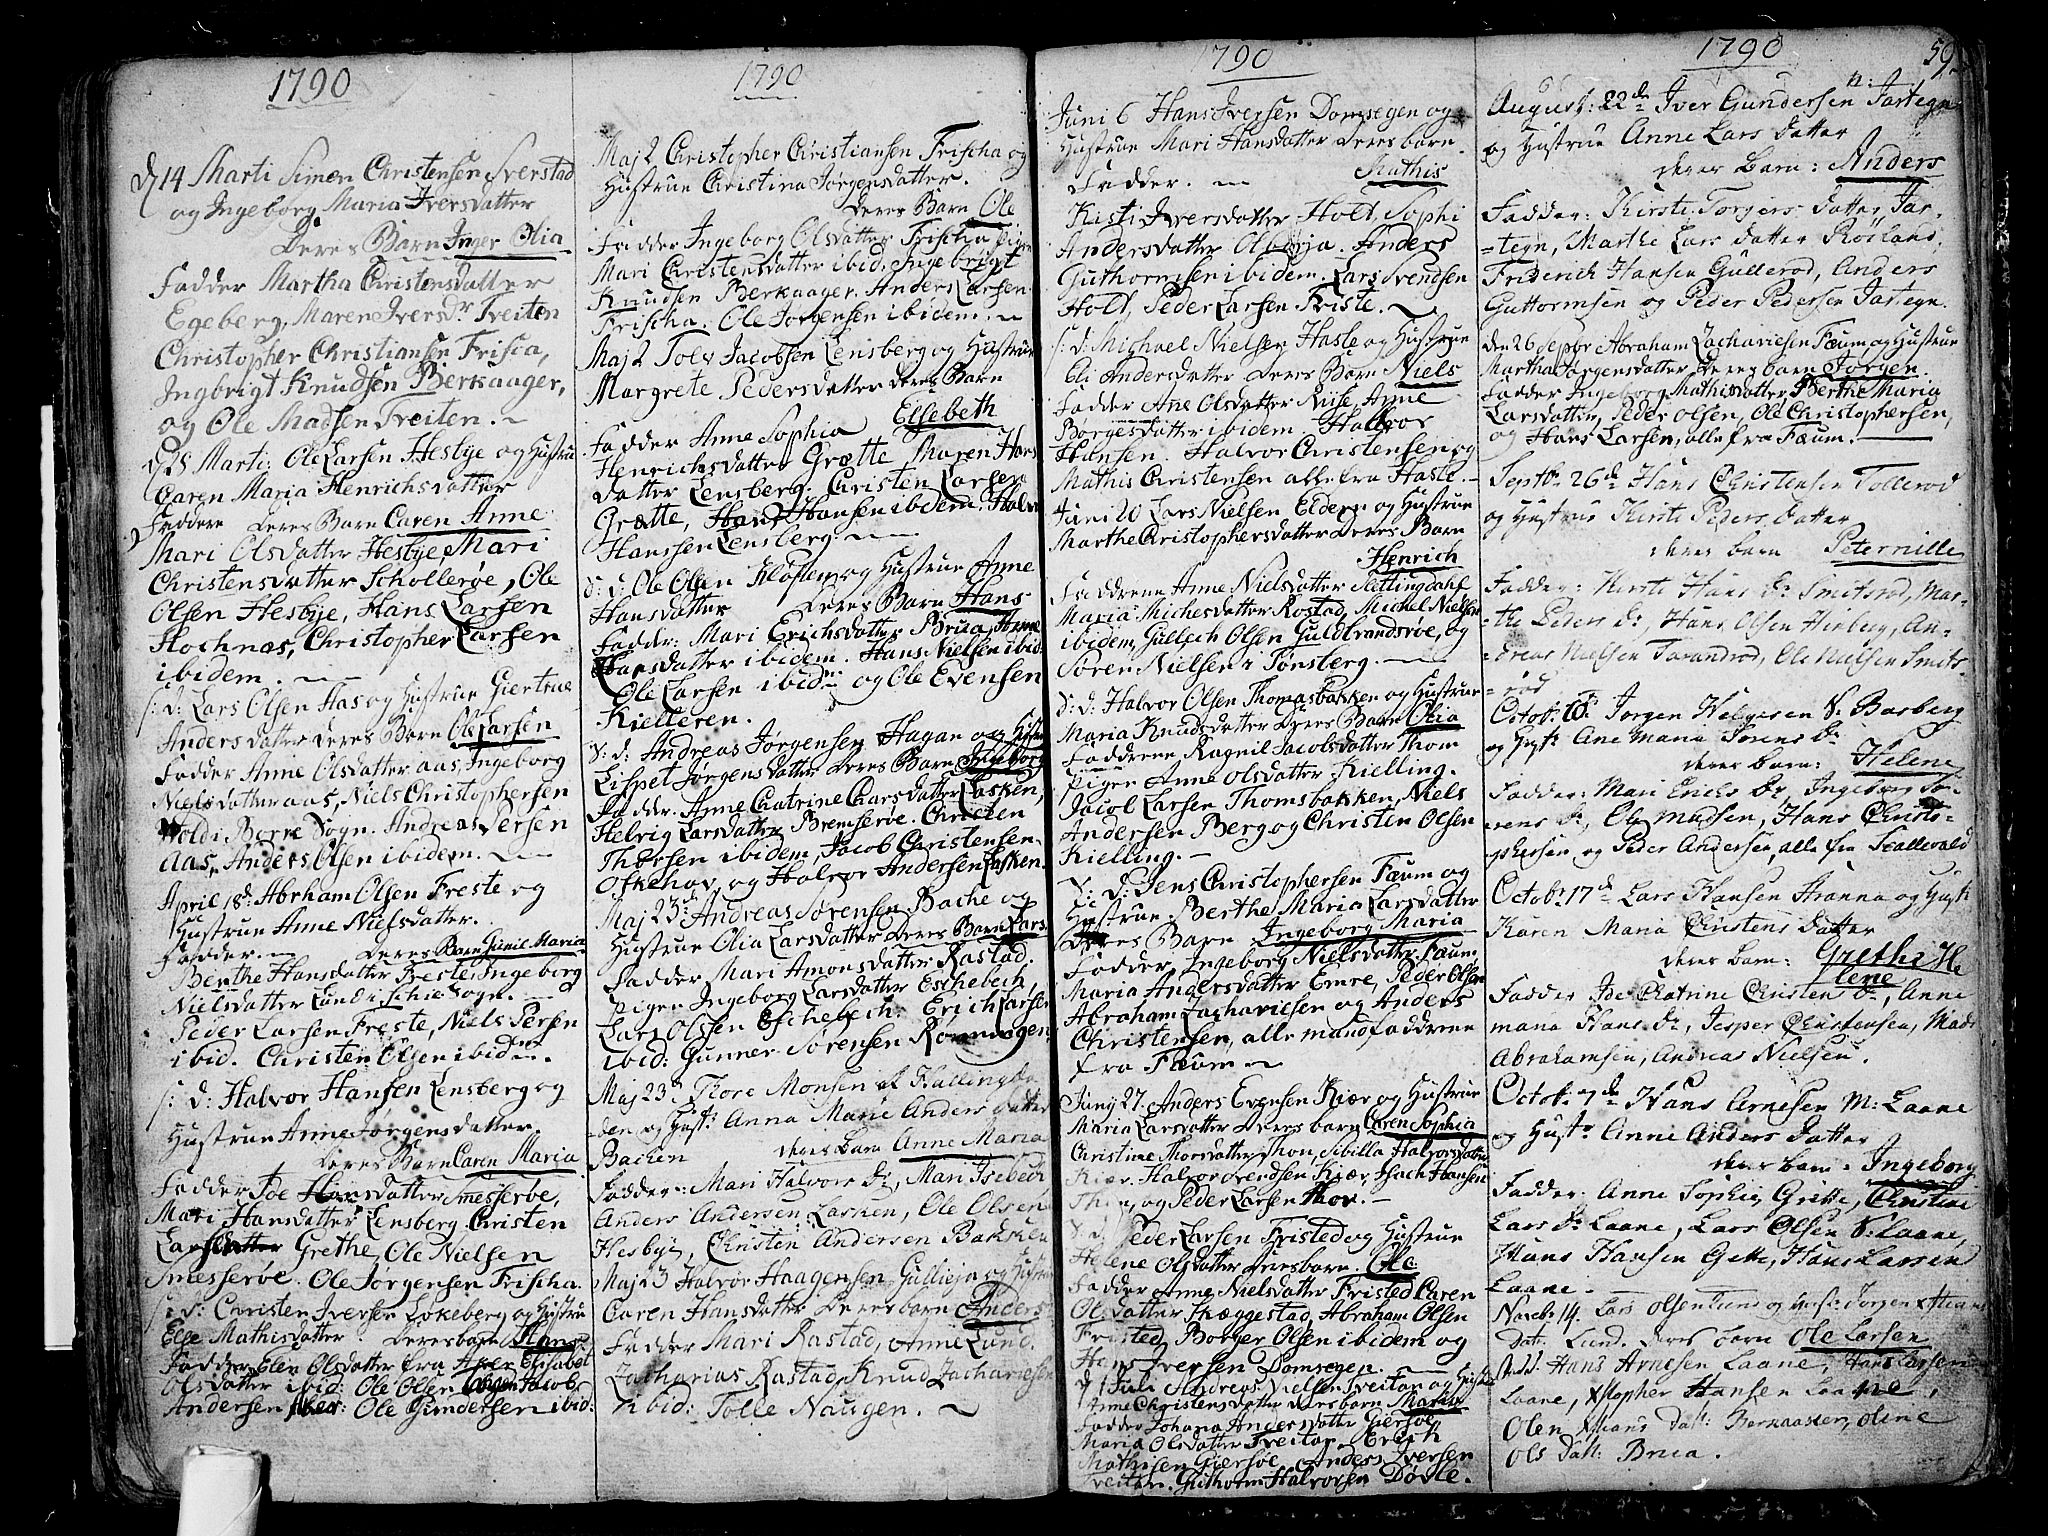 1790
D 14 Marti Simon Christensen Sverstad
og Ingeborg Maria Iversdatter
Deres Barn Inger Olia
Fadder Martha Christensdatter
Egeberg, Maren Iversdr Treiten
Christopher Christiansen Friscia,
Ingbrigt Knudsen Berkaager,
og Ole Madsen Treiten.
D 25 Marti: Ole Larsen Hesbye og Hustru
Caren Maria Henrichsdatter
Faddere Deres Barn Caren Anne
Mari Olsdatter Hesbye, Mari
Christensdatter Schollerøe, Ole
Olsen Hesbye, Hans Larsen
Hochnæs, Christopher Larsen
ibidem.
S: d: Lars Olsen Aas og Hustrue Giertrue
Andersdatter Deres Barn Ole Larsen
Fadder Anne Olsdatter aas, Ingeborg
Nielsdatter aas, Niels Christophersen
Wold i Borre Sogn. Andreas Persen
Aas, Anders Olsen ibidem.
April 18d: Abrham Olsen Freste og
Hustrue Anne Nielsdatter.
Fadder. Deres Barn Gunil Maria
Berthe Hansdatter Freste, Ingeborg
Nielsdatter Lund i Schie Sogn.
Peder Larsen Freste, Niels Persen
ibid. Christen Olsen ibidem.
S: d: Halvor Hansen Lensberg og
Hustrue Anne Jørgensdatter.
Deres Barn Caren Maria
Fadder Ide Hansdatter Smesserøe,
Mari Hansdatter Lensberg, Christen
Larsdatter Grethe, Ole Nielsen
Smesserøe. Ole Jørgensen Frischa.
S: d: Christen Iversen Løkeberg og Hustru
Else Mathisdatter Deres barn Hans
Fadder Elen Olsdatter fra Aker Elisabet
Olsdatter ibid: Ole Olsen Jacob
Andersen Ole Gundersen ibid:
1790
Maj 2 Christopher Christiansen Frischa og
Hustrue Christina Jørgensdatter.
Deres Barn Ole
Fadder Ingeborg Olsdatter Frischa pigen
Mari Christensdatter ibid. Ingebrigt
Knudsen Berkaager. Anders Larsen
Frischa. Ole Jørgensen ibidem.
Maj 2 Tolv Jacobsen Lensberg og Hustrue
Margrete Pedersdatter Deres Barn
Elsebeth
Fadder Anne Sophia
Henrichsdatter Grætte, Maren Hans
datter Lensberg, Christen Larsen
Grætte, Hans Hansen ibidem, Halvor
Hanssen Lensberg.
S: d: Ole Olsen Kløften og Hustrue Anne
Hansdatter Deres Barn Hans
Fadder: Mari Erichsdatter Brua, Anne
Hansdatter ibidem. Hans Nielsen ibid:
Ole Larsen ibidem og Ole Evensen
Kielleren.
S: d: Andreas Jørgensen Hagan og Hustru
Lispet Jørgensdatter Deres Barn Ingeborg
Fadder. Anne Chatrine Larsdatter Lasken,
Helvig Larsdatter Bremserøe. Christen
Thorsen ibidem, Jacob Christensen
Ofkehav, og Halvor Andersen Lasken.
Maj 23d: Andreas Sørensen Bache og
Hustrue Olia Larsdatter Deres Barn Lars.
Fadder Mari Amonsdatter Rastad.
Pigen Ingeborg Larsdatter Eschebech,
Lars Olssen Eschebech: Erich Larsen
ibid: Gunner Sørensen Romnogen:
Maj 23: Thore Monsen af Hallingda
den og Hust: Anna Marie Anders datter
Bachen deres barn Anne Maria
Fadder: Mari Halvors Dr, Mari Isebech
Anders Andersen Lasken, Ole Olsen
Hesbye, Christen Andersen Bakken
Maj 23 Halvor Haagensen Gullieja og Hustru
Caren Hansdatter Deres barn Anders
Fadder Mari Rastad, Anne Lund.
Zacharias Rastad, Knud Zachariesen
ibid: Tolle Naugen.
1790
Juni 6 Hans Iversen Domsegen og
Hustrue Mari Hansdatter Deres barn
Fadder. Mathis
Kisti Iversdatter Holt, Sophi
Andersdatter Olverja. Anders
Guthormsen ibidem. Lars Svendsen
Holt, Peder Larsen Friste.
S: d: Michael Nielsen Hasle og Hustrue
Eli Andersdatter Deres Barn Niels
Fadder Ane Olsdatter Rise, Anne
Borgesdatter ibidem. Halvor
Hansen. Halvor Christensen og
Mathis Christensen alle fra Hasle.
Juni 20 Lars Nielsen Eldern og Hustrue
Marthe Christophersdatter Deres Barn
Henrich
Faddrene Anne Nielsdatter Slettingdahl
Maria Michesdatter Rostad, Michel Nielsen
ibidem, Gullech Olsen Guldbrandsrøe, og
Søren Nielsen i Tønsberg.
S: d: Halvor Olsen Thomasbakken og Hustrue
Maria Knudsdatter Deres Barn Olia
Faddrene Ragnil Jacobsdatter Thom
Pigen Anna Olsdatter Kielling.
Jacob Larsen Thomsbakken, Niels
Andersen Berg og Christen Olsen
Kielling.
S: d: Jens Christophersen Fæum og
Hustrue Berthe Maria Larsdatter
Deres Barn Ingeborg Maria
Fadder Ingeborg Nielsdatter Fæum
Maria Andersdatter Emre, Peder Olsen
Abraham Zachariesen og Anders
Christensen, alle mandfaddrene
fra Fæum
Juny 27. Anders Evensen Kiær og Hustrue
Maria Larsdatter Deres barn Caren Sophia
Christine Thorsdatter Thon, Sibilla Halvorsdatter
Kiær. Halvor Svendsen Kiær, Isach Hansen
Thon, og Peder Larsen Thon.
S. d. Peder Larsen Fristed og Hustrue
Helene Olsdatter Deres barn. Ole
Fadder Anne Nielsdatter Fristed Caren
Olsdatter Skæggestad, Abraham Olsen
Fristed, Borger Olsen ibidem og
Hans Iversen Domsegen.
D 1 Juli Andreas Nielsen Treiten og Hustru
Anne Christensdatter Deres barn Maria
Fadder Johana Andersdatter Giersøe,
Maria Olsdatter Treiten. Erich
Mathisen Giersøe, Anders Iversen
Treiten. Guthorm Halvorsen Døvle.
1790
59
August: 22de Iver Gundersen n: Jartegn
og Hustrue Anne Lars datter
deres barn: Anders
Fadder: Kirste Torgers datter Jar-
-tegn, Marthe Lars datter Røsland,
Friderich Hansen Gullerod, Anders
Guttormsen og Peder Pedersen Jartegn.
den 26 Sepbr Abraham Zachariesen Fæum, og Hustrue
Martha Jørgensdatter, Deres barn Jørgen.
Fadder Ingeborg Mathisdatter, Berthe Maria
Larsdatter, Peder Olsen, Ole Christophersen,
og Hans Larsen, alle fra Fæum.
Septbr 26de Hans Christensen Tollerod
og Hustrue Kirste Peders datter
deres barn Peternille
Fadder: Kirste Hans Dr Smitsrød, Mar-
-the Peders Dr, Hans Olsen Herberg, An-
dreas Nielsen Tarandrød, Ole Nielsen Smits-
-rød
Octob: 10de Jørgen Helgesen S. Basberg
og Hustr Ane Maria Sørens Dr
deres barn: Helene
Fadder: Mari Erichs Dr, Ingeborg Sø-
rens Dr, Ole Madsen, Hans Christo-
phersen og Peder Andersen, alle fra Scallevald
Octobr 17de Lars Hansen Stranna og Hust
Karen Maria Christens datter
deres barn: Grethe He
lene
Fadder Ide Chatrine Christens Dr, Anne
Maria Hans Dr, Jesper Christensen, Mads
Abrahamsen, Andreas Nielsen.
Octobr 7de Hans Arnesen M: Laane
og Hustr Anne Anders datter
deres barn Ingeborg
Fadder: Anne Sophia Grette, Christine
Lars Dr Laane, Lars Olsen S: Laane,
Hans Hansen Gette, Hans Larsen
Laane.
Novebr 14. Lars Olsen Lund og Hust: Jørgen
Dat: Lund. Deres barn Ole Larsen
Fadd. Hans Arnesen Laane, Hans Larsen
Laane, Xstopher Hansen Laane,
Olen Xstians Datt: Berkaasen, Oline
Ols Datt: Brua.